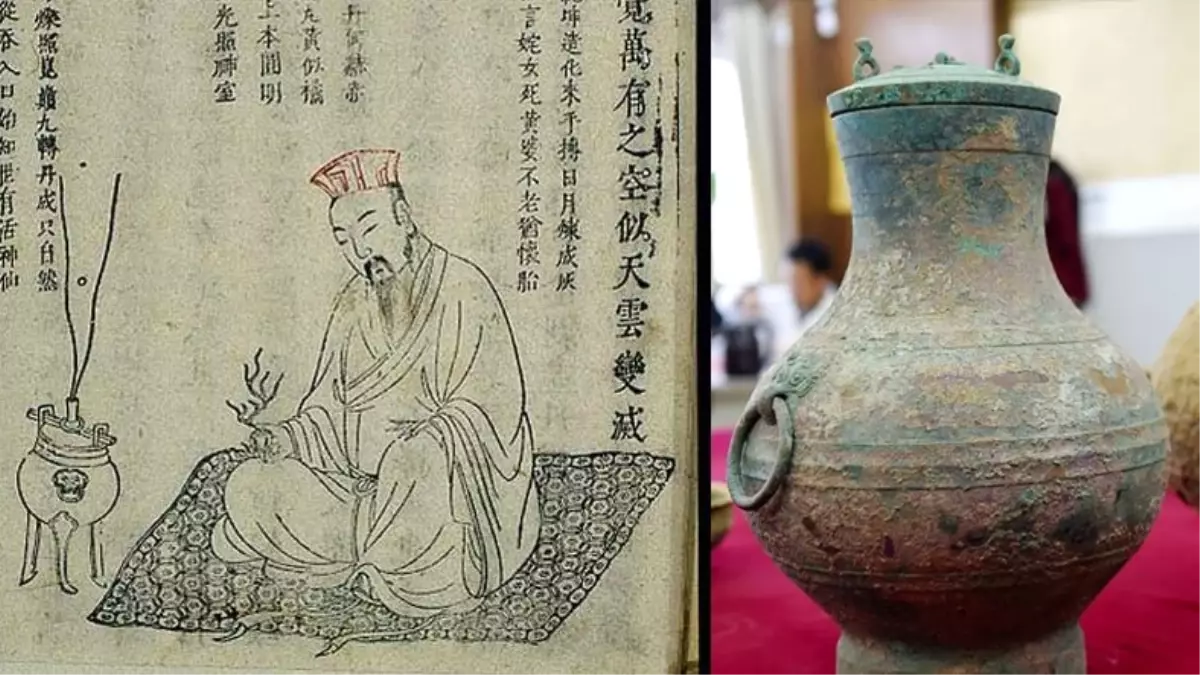 萬有之空似天雲變滅
坤造化來手摶日月煉成灰
言姹女死黃婆不老猶懷胎
丹何赫赤
丸黃似橘
上本圓明
光照神室
爍照崑巔九轉丹成只自然
從吞入口始知世有活神仙